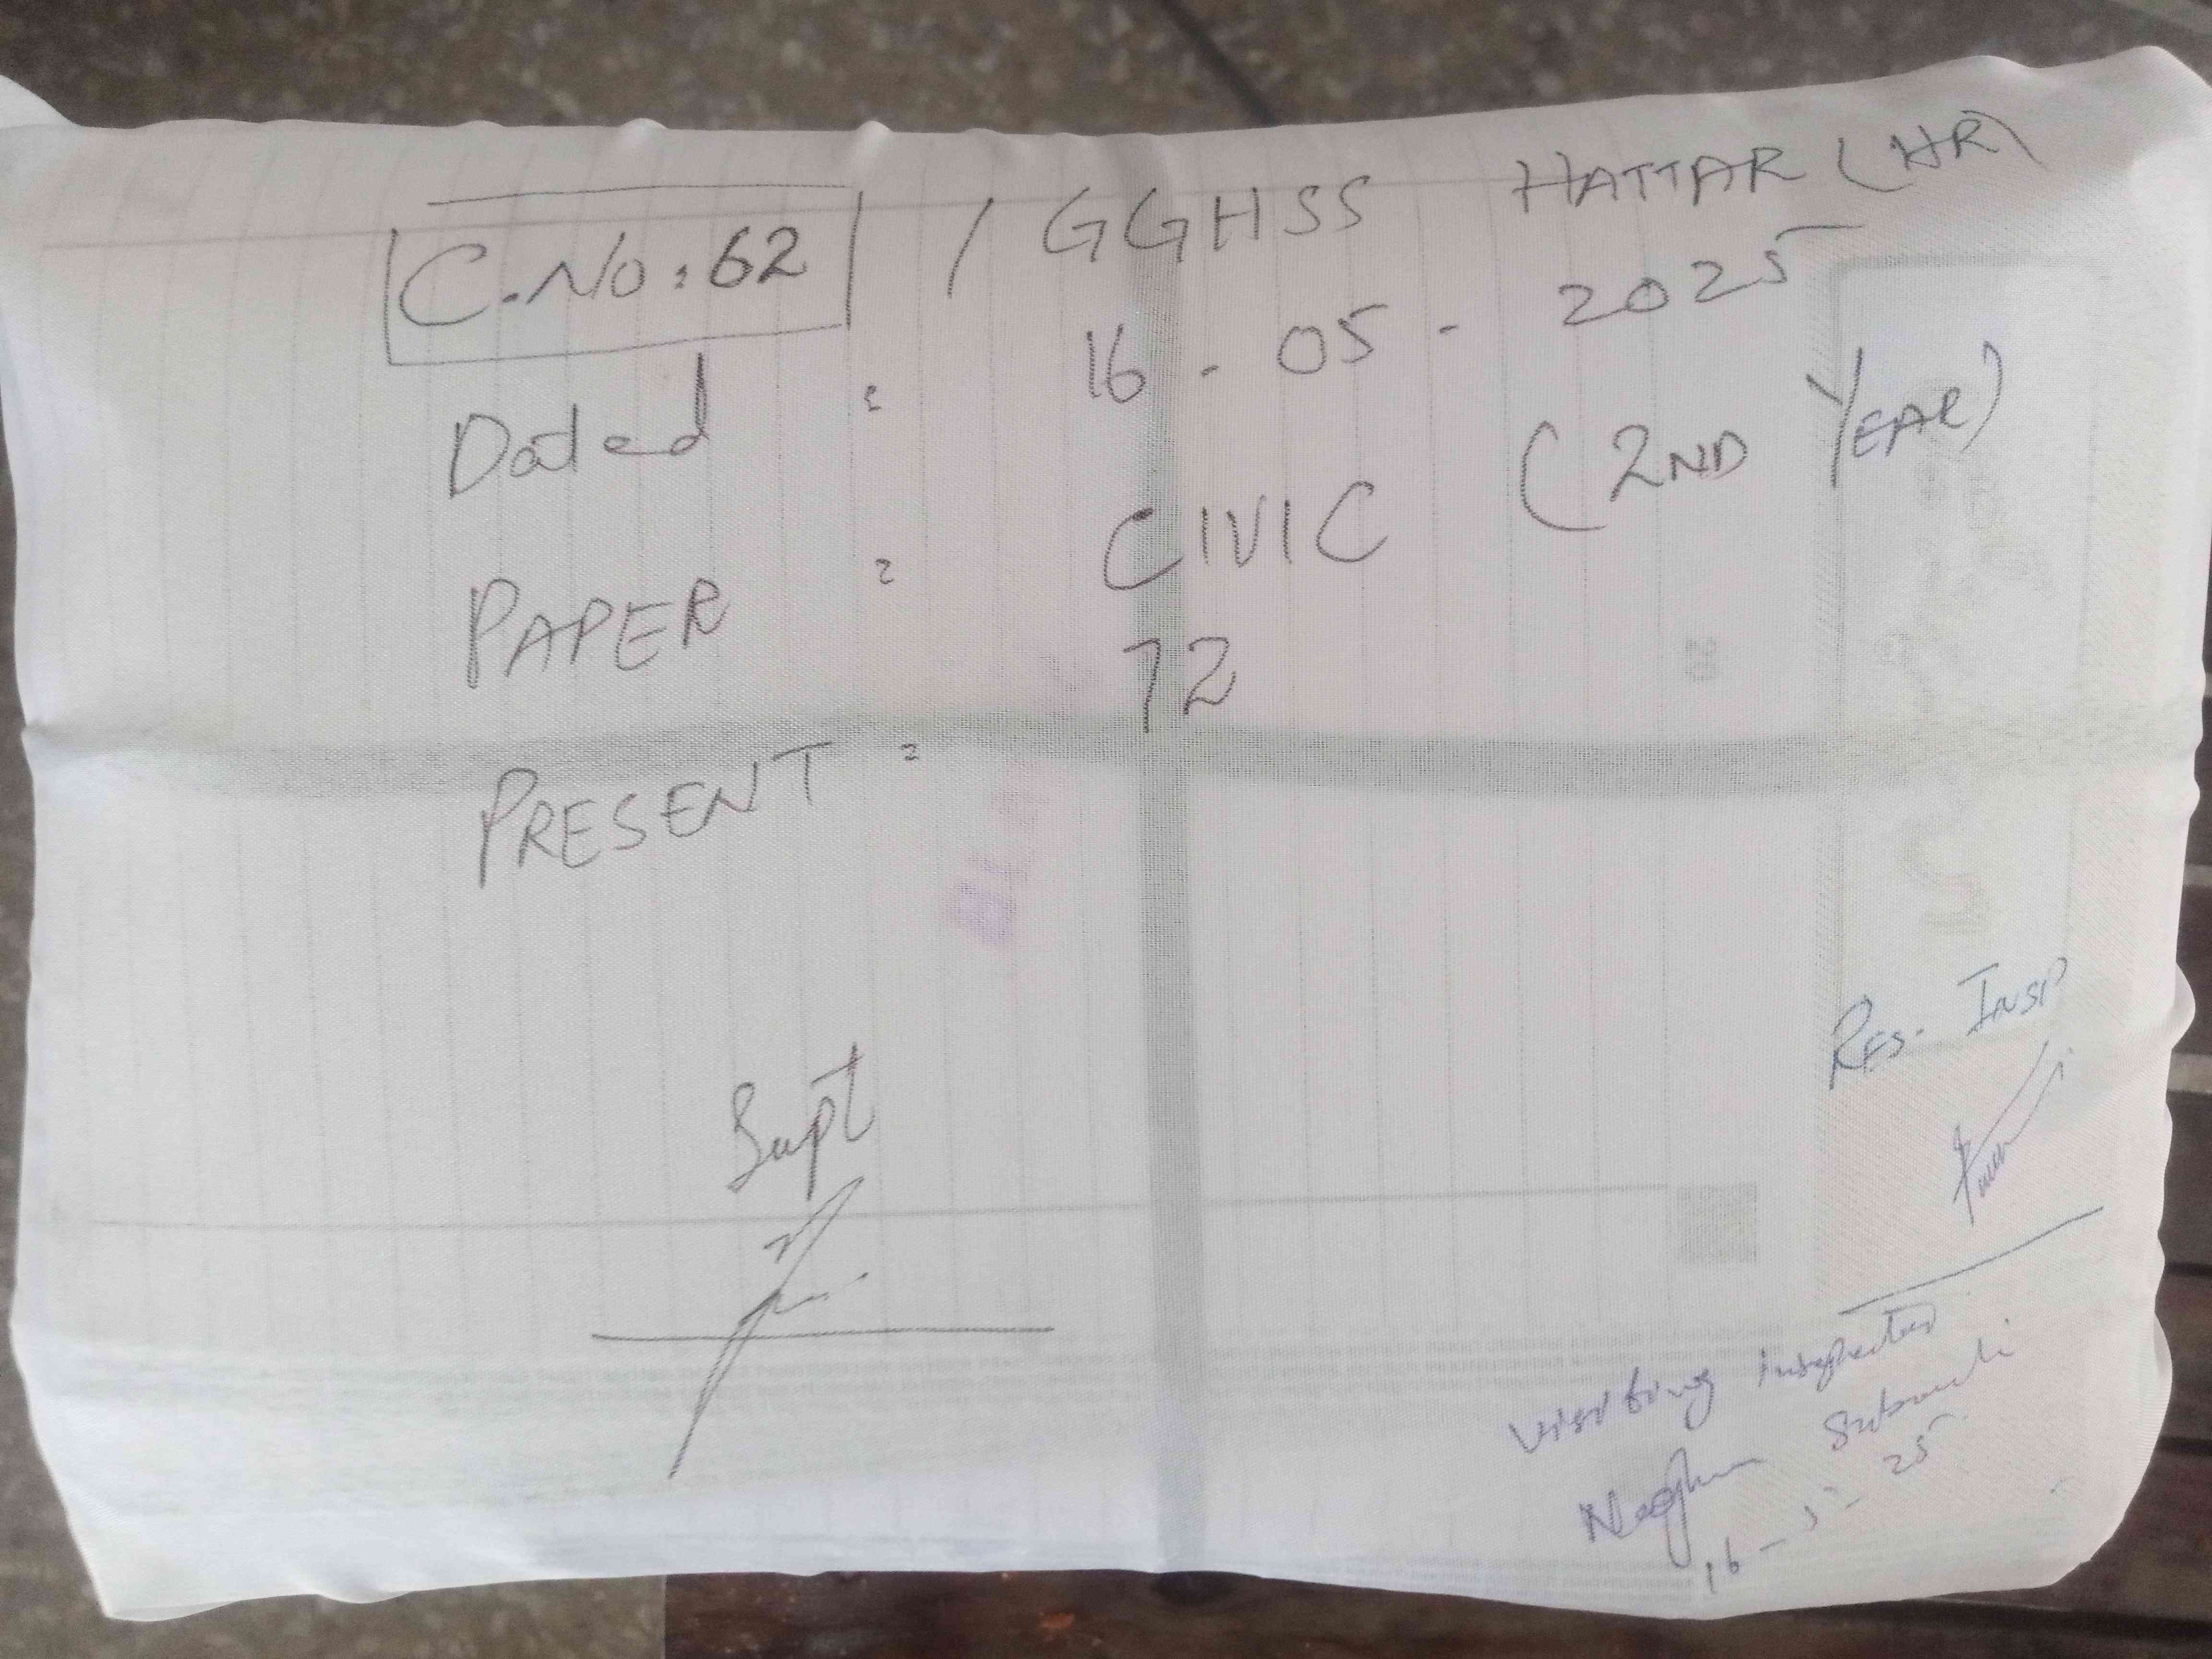 C.No: 62 / GGHSS HATTAR (HR)
Dated : 16 - 05 - 2025
PAPER : CIVIC (2ND YEAR)
PRESENT = 72
Supt
RES. INSP
Visiting inspector
16-5-25